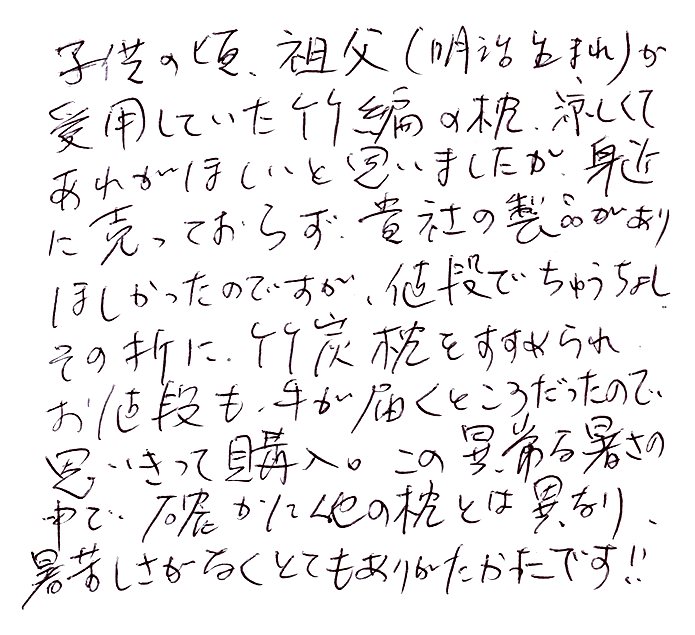 子供の頃、祖父(明治生まれ)が
愛用していた竹編の枕、涼しくて
あれがほしいと思いましたが、身近
に売っておらず、貴社の製品があり
ほしかったのですが、値段でちゅうちょし
その折に、竹炭枕をすすめられ
お値段も、手が届くところだったので、
思いきって購入。この異常な暑さの
中で、確かに他の枕とは異なり、
暑苦しさがなくとてもありがたかたです!!